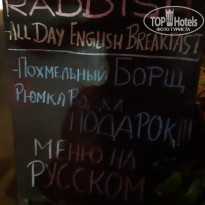 RABBIT
ALL DAY ENGLISH BREAKFAST
- ПОХМЕЛЬНЫЙ БОРЩ
РЮМКА
ПОДАРОК!!!
МЕНЮ НА
РУССКОМ
TOP Hotels
ФОТО ТУРИСТА